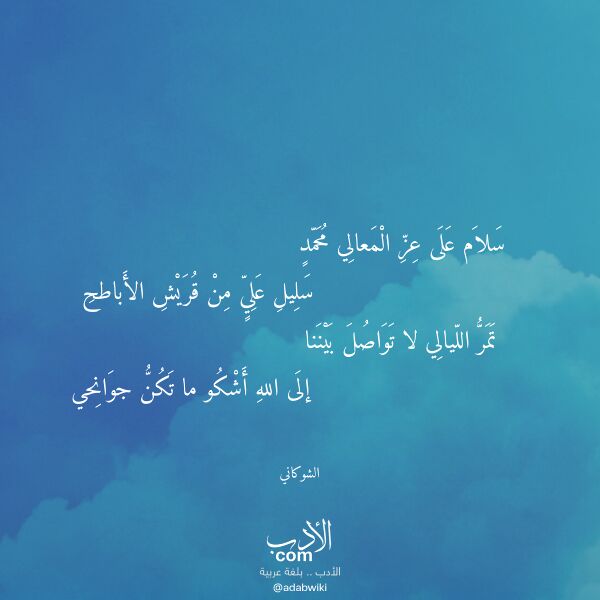 سَلاَم عَلَى عِزِّ الْمَعالِي مُحَمّدٍ
سَلِيلِ عَلِيٍّ مِنْ قُرَيْشِ الأَباطحِ
تَمَرُّ اللّيالِي لا تَوَاصُلَ بَيْنَنا
إلَى اللهِ أَشْكُو ما تَكُنُّ جوَانِحي
الشوكاني
الأدب
com
الأدب .. بلغة عربية
@adabwiki